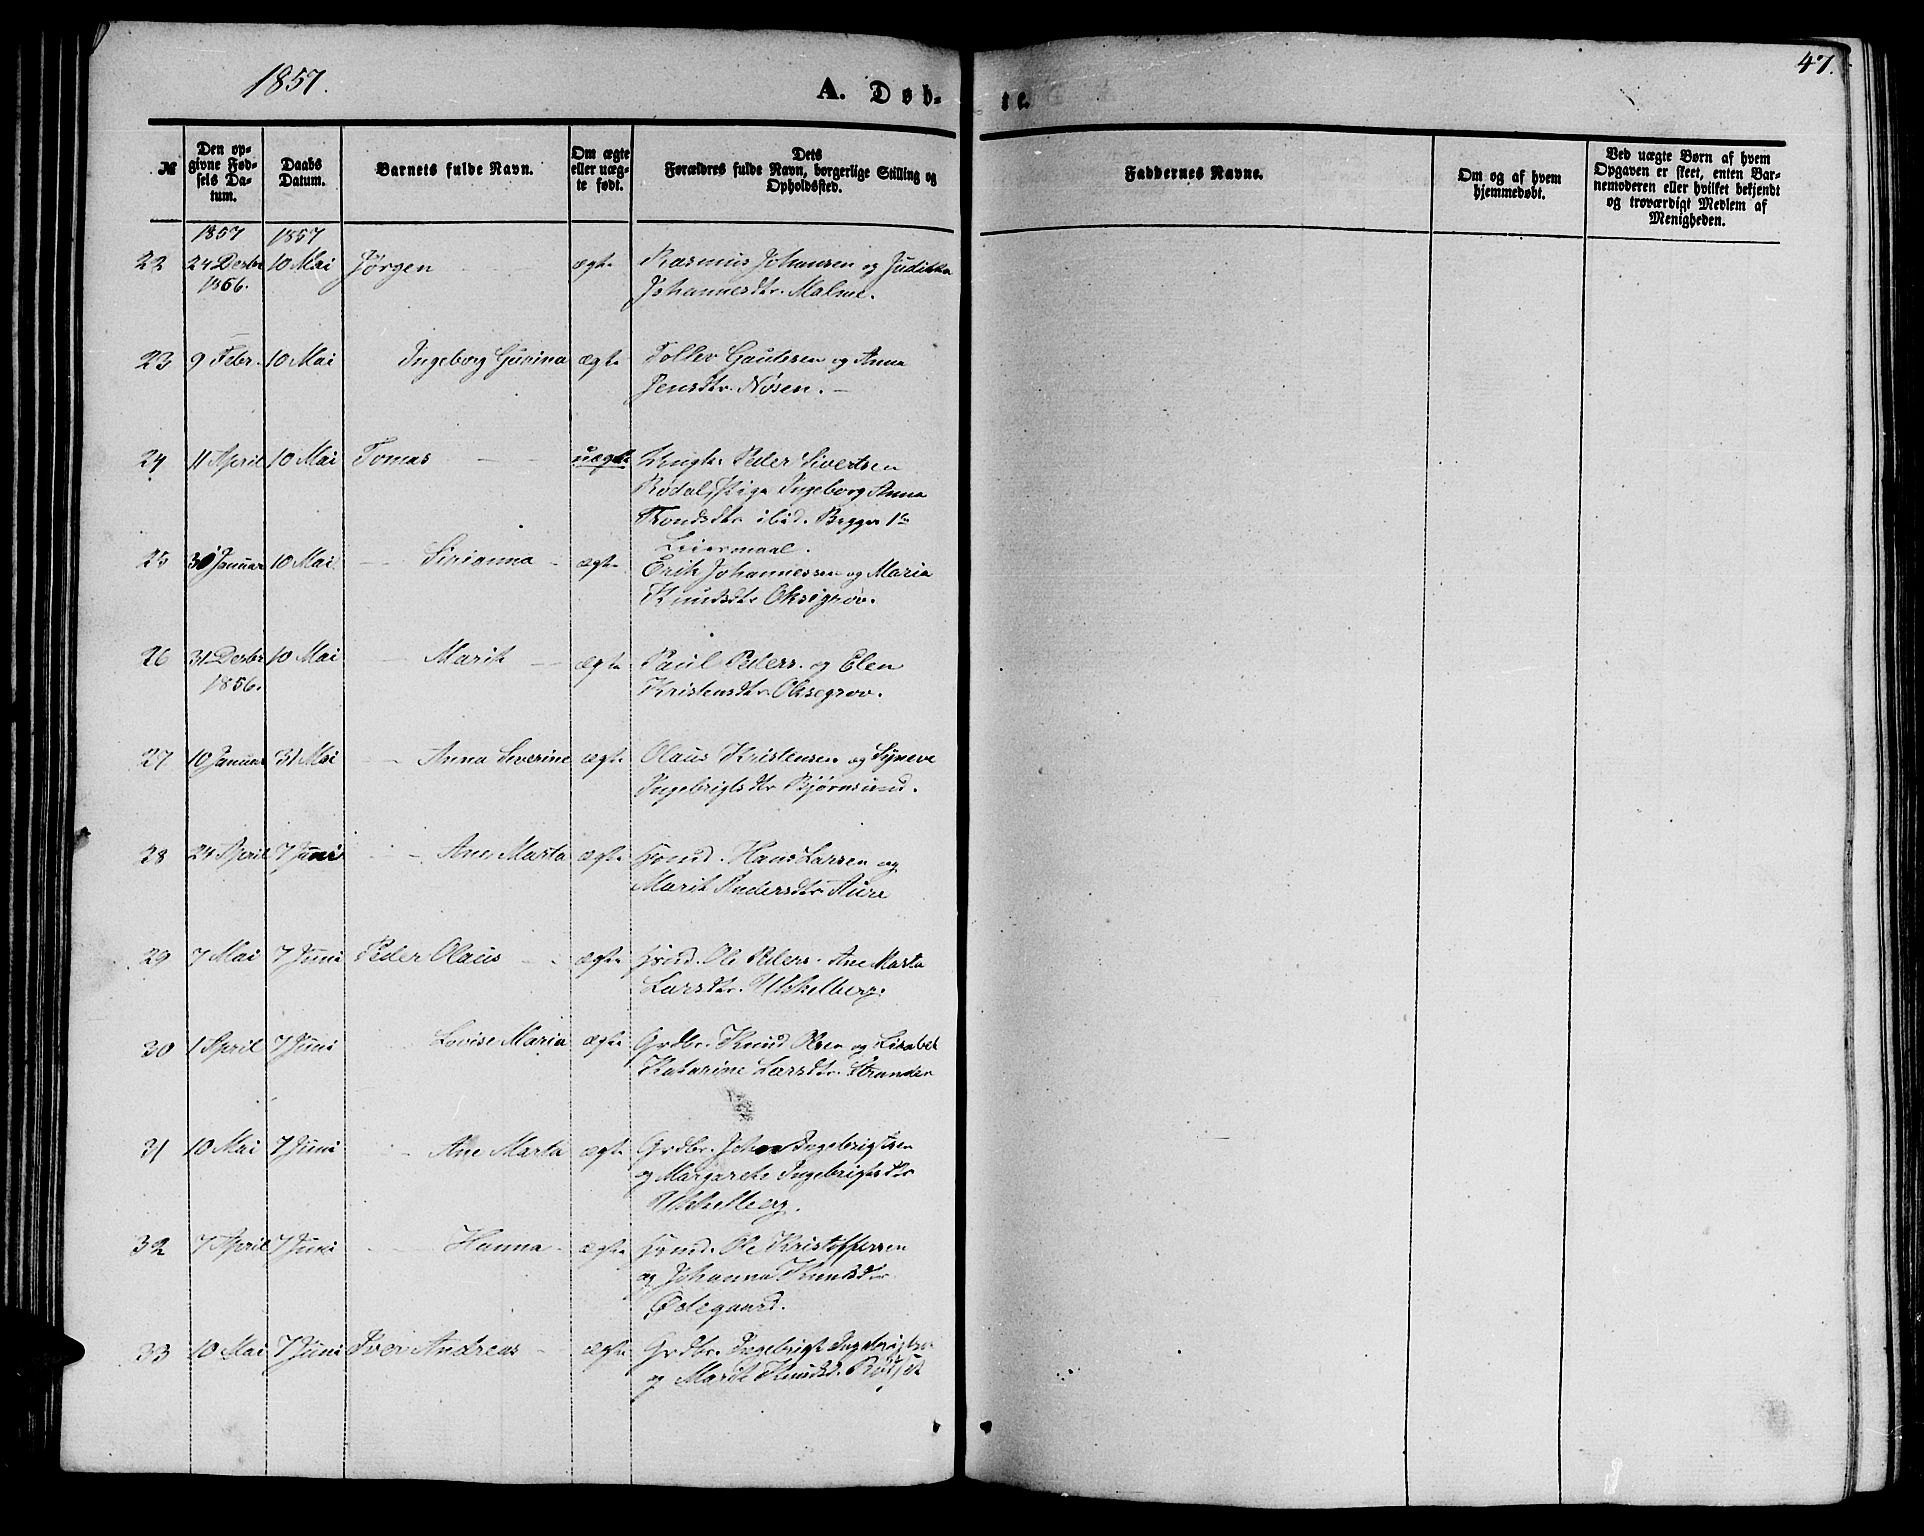 1857.
A. Døb-
te.
47.
№
Den op-
givne Fød-
sels Da-
tum.
Daabs
Datum.
Barnets fulde Navn.
Om ægte
eller uæg-
te født.
Dets
Forældres fulde Navn, borgerlige Stilling og
Opholdssted.
Faddernes Navne.
Om og af hvem
hjemmedøbt.
Ved uægte Børn af hvem
Opgaven er skeet, enten Bar-
nemoderen eller hvilket bekjendt
og troværdigt Medlem af
Menigheden.
1857 1857
22 24 Desbr 10 Mai Jørgen ægte Rasmus Johansen og Juditka
1856. Johannesdtr. Malme.
23 9 Febr. 10 Mai Ingeborg Gurina ægte Tollev Gautesen og Anna
Jensdtr. Nøsen.
24 11 April 10 Mai Tomas uægte Ungk. Peder Sivertsen
Pige Ingeborg Anna
Trondsdtr ibid. Begges 1ste
Leiermaal.
25 30 Januar 10 Mai Sirianna ægte Erik Johannessen og Maria
Knudsdtr Oksegrov.
26 31 Desbr 10 Mai Marit ægte Paul Peders. og Elen
1856. Kristensdtr. Oksegrov.
27 10 Januar 31 Mai Anna Severine ægte Olaus Kristensen og Syneve
Ingebrigtsdtr Bjørnsund.
28 24 April 7 Juni Ane Marta ægte Hmd. Hans Larsen og
Marit Pedersdtr Aure
29 7 Mai 7 Juni Peder Olaus ægte Hmd. Ole Peders. Ane Marta
Larsdtr. Mikkelberg.
30 1 April 7 Juni Lovise Maria ægte Grdbr. Knud Olsen og Lisabet
Katarine Larsdtr. Stranden
31 10 Mai 7 Juni Ane Marta ægte Grdbr. Johan Ingebrigtsen
og Margarete Ingebrigtsdtr
Mikkelberg.
32 7 April 7 Juni Hanna ægte Hmd. Ole Kristoffersen
og Johanna Knudsdtr
Ødegaard.
33 10 Mai 7 Juni Iver Andreas ægte Grdbr. Ingebrigt Ingebrigtsen
og Marit Knudsd. Rødset